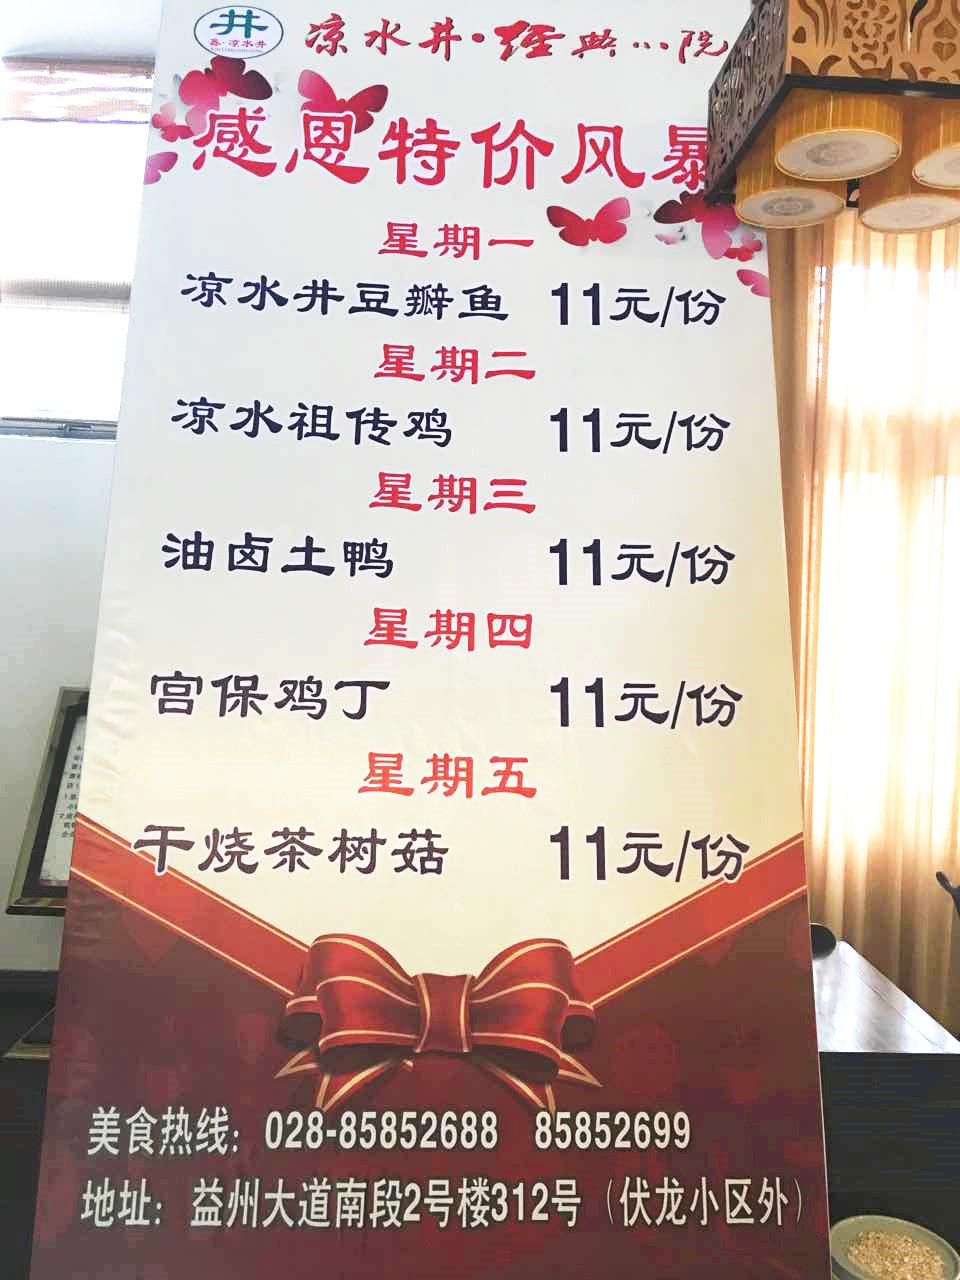 井
鑫·凉水井
凉水井·经典小院
感恩特价风暴
星期一
凉水井豆瓣鱼 11元/份
星期二
凉水祖传鸡 11元/份
星期三
油卤土鸭 11元/份
星期四
宫保鸡丁 11元/份
星期五
干烧茶树菇 11元/份
美食热线：028-85852688 85852699
地址：益州大道南段2号楼312号（伏龙小区外）